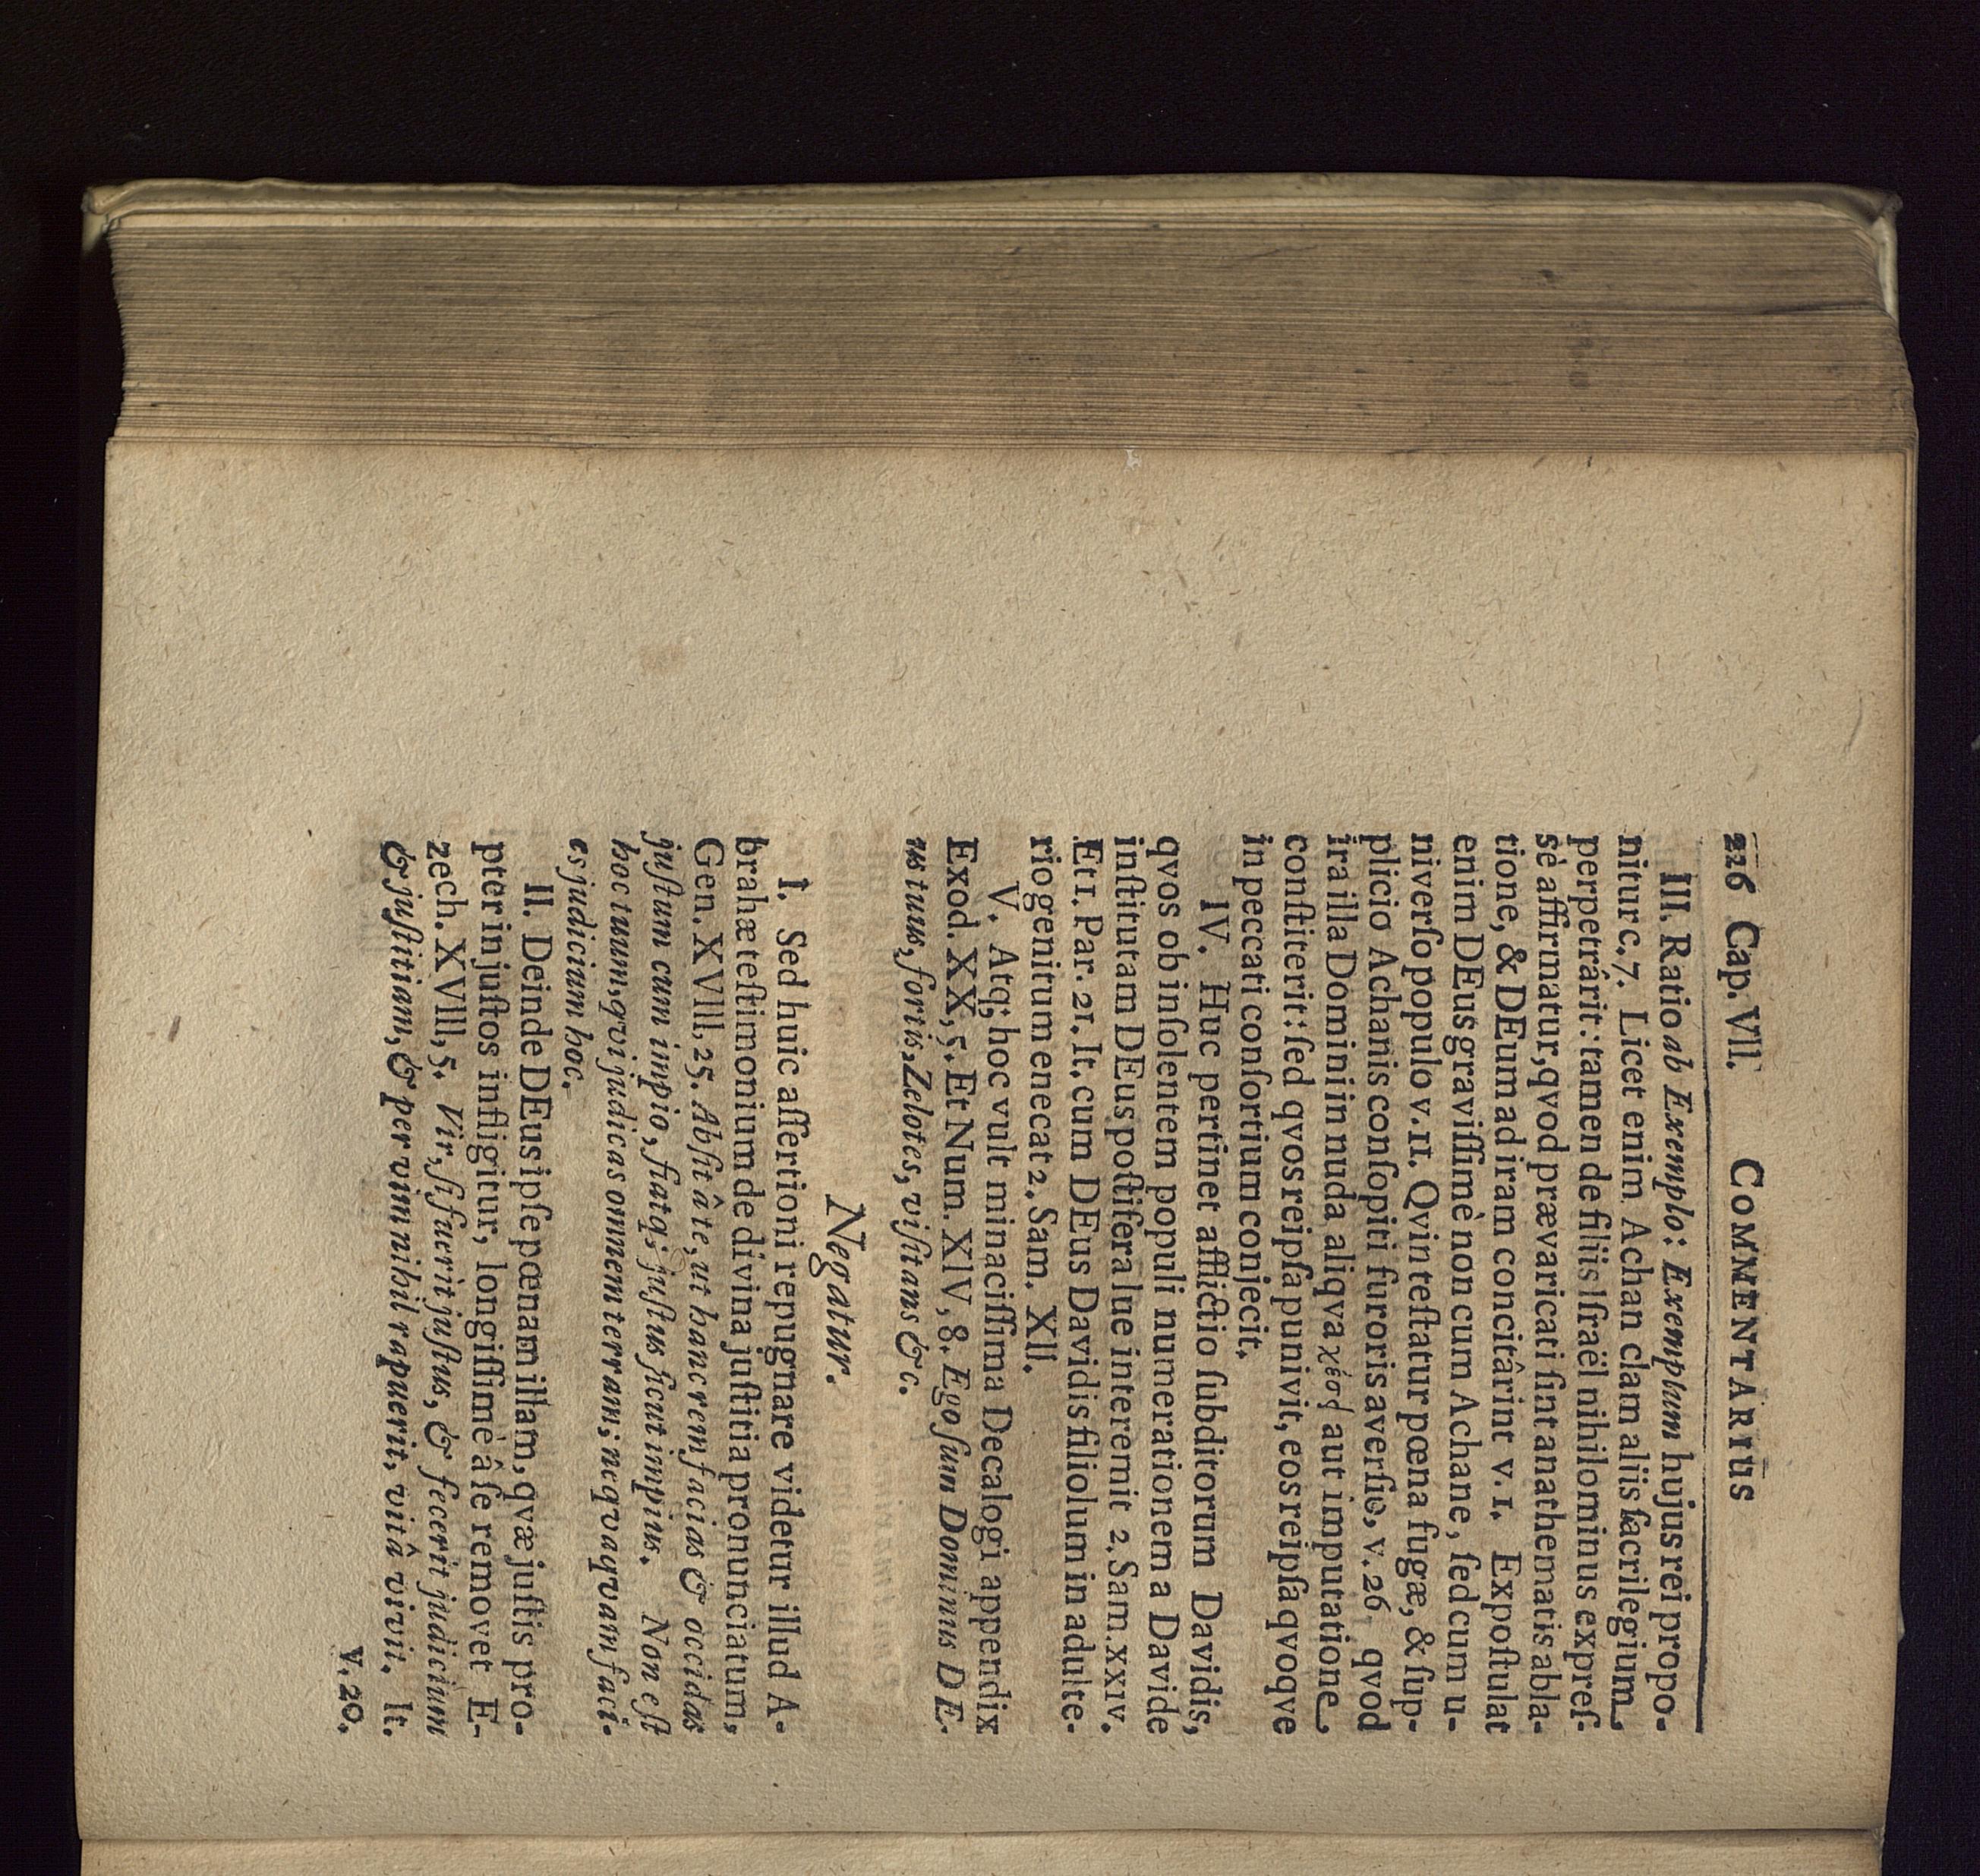 226 Cap. VII. COMMENTARIUS
III. Ratio ab Exemplo: Exemplum hujus rei propo-
nitur c. 7. Licet enim Achan clam aliis ſacrilegium
perpetrârit: tamen de filiis Iſraël nihilominus expreſ-
sè affirmatur, qvod prævaricati ſint anathematis abla-
tione, & DEum ad iram concitârint v. 1. Expoſtulat
enim DEus graviſſimè non cum Achane, ſed cum u-
niverſo populo v. 11. Qvin teſtatur pœna fugæ, & ſup-
plicio Achanis conſopiti furoris averſio, v. 26 qvod
ira illa Domini in nuda aliqva aut imputatione
conſtiterit: ſed qvos reipſa punivit, eos reipſa qvoqve
in peccati conſortium conjecit.
IV. Huc pertinet afflictio ſubditorum Davidis,
qvos ob inſolentem populi numerationem a Davide
inſtitutam DEus peſtifera lue interemit 2. Sam. XXIV.
Et 1. Par. 21. It. cum DEus Davidis filiolum in adulte-
rio genitum enecat 2. Sam. XII.
V. Atq; hoc vult minaciſſima Decalogi appendix
Exod. XX, 5. Et Num. XIV, 8. Ego ſum Dominus DE-
us tuus, fortis, Zelotes, viſitans &c.
Negatur.
I. Sed huic aſſertioni repugnare videtur illud A-
brahæ teſtimonium de divina juſtitia pronunciatum,
Gen. XVIII, 25. Abſit â te, ut hanc rem facias & occidas
juſtum cum impio, fiatq; juſtus ſicut impius. Non eſt
hoc tuum, qvi judicas omnem terram; neqvaqvam faci-
es judicium hoc.
II. Deinde DEus ipſe pœnam illam, qvæ juſtis pro-
pter injuſtos infligitur, longiſſimè â ſe removet E-
zech. XVIII, 5. Vir, ſi fuerit juſtus, & fecerit judicium
& juſtitiam, & per vim nihil rapuerit, vitâ vivit. It.
v. 20.